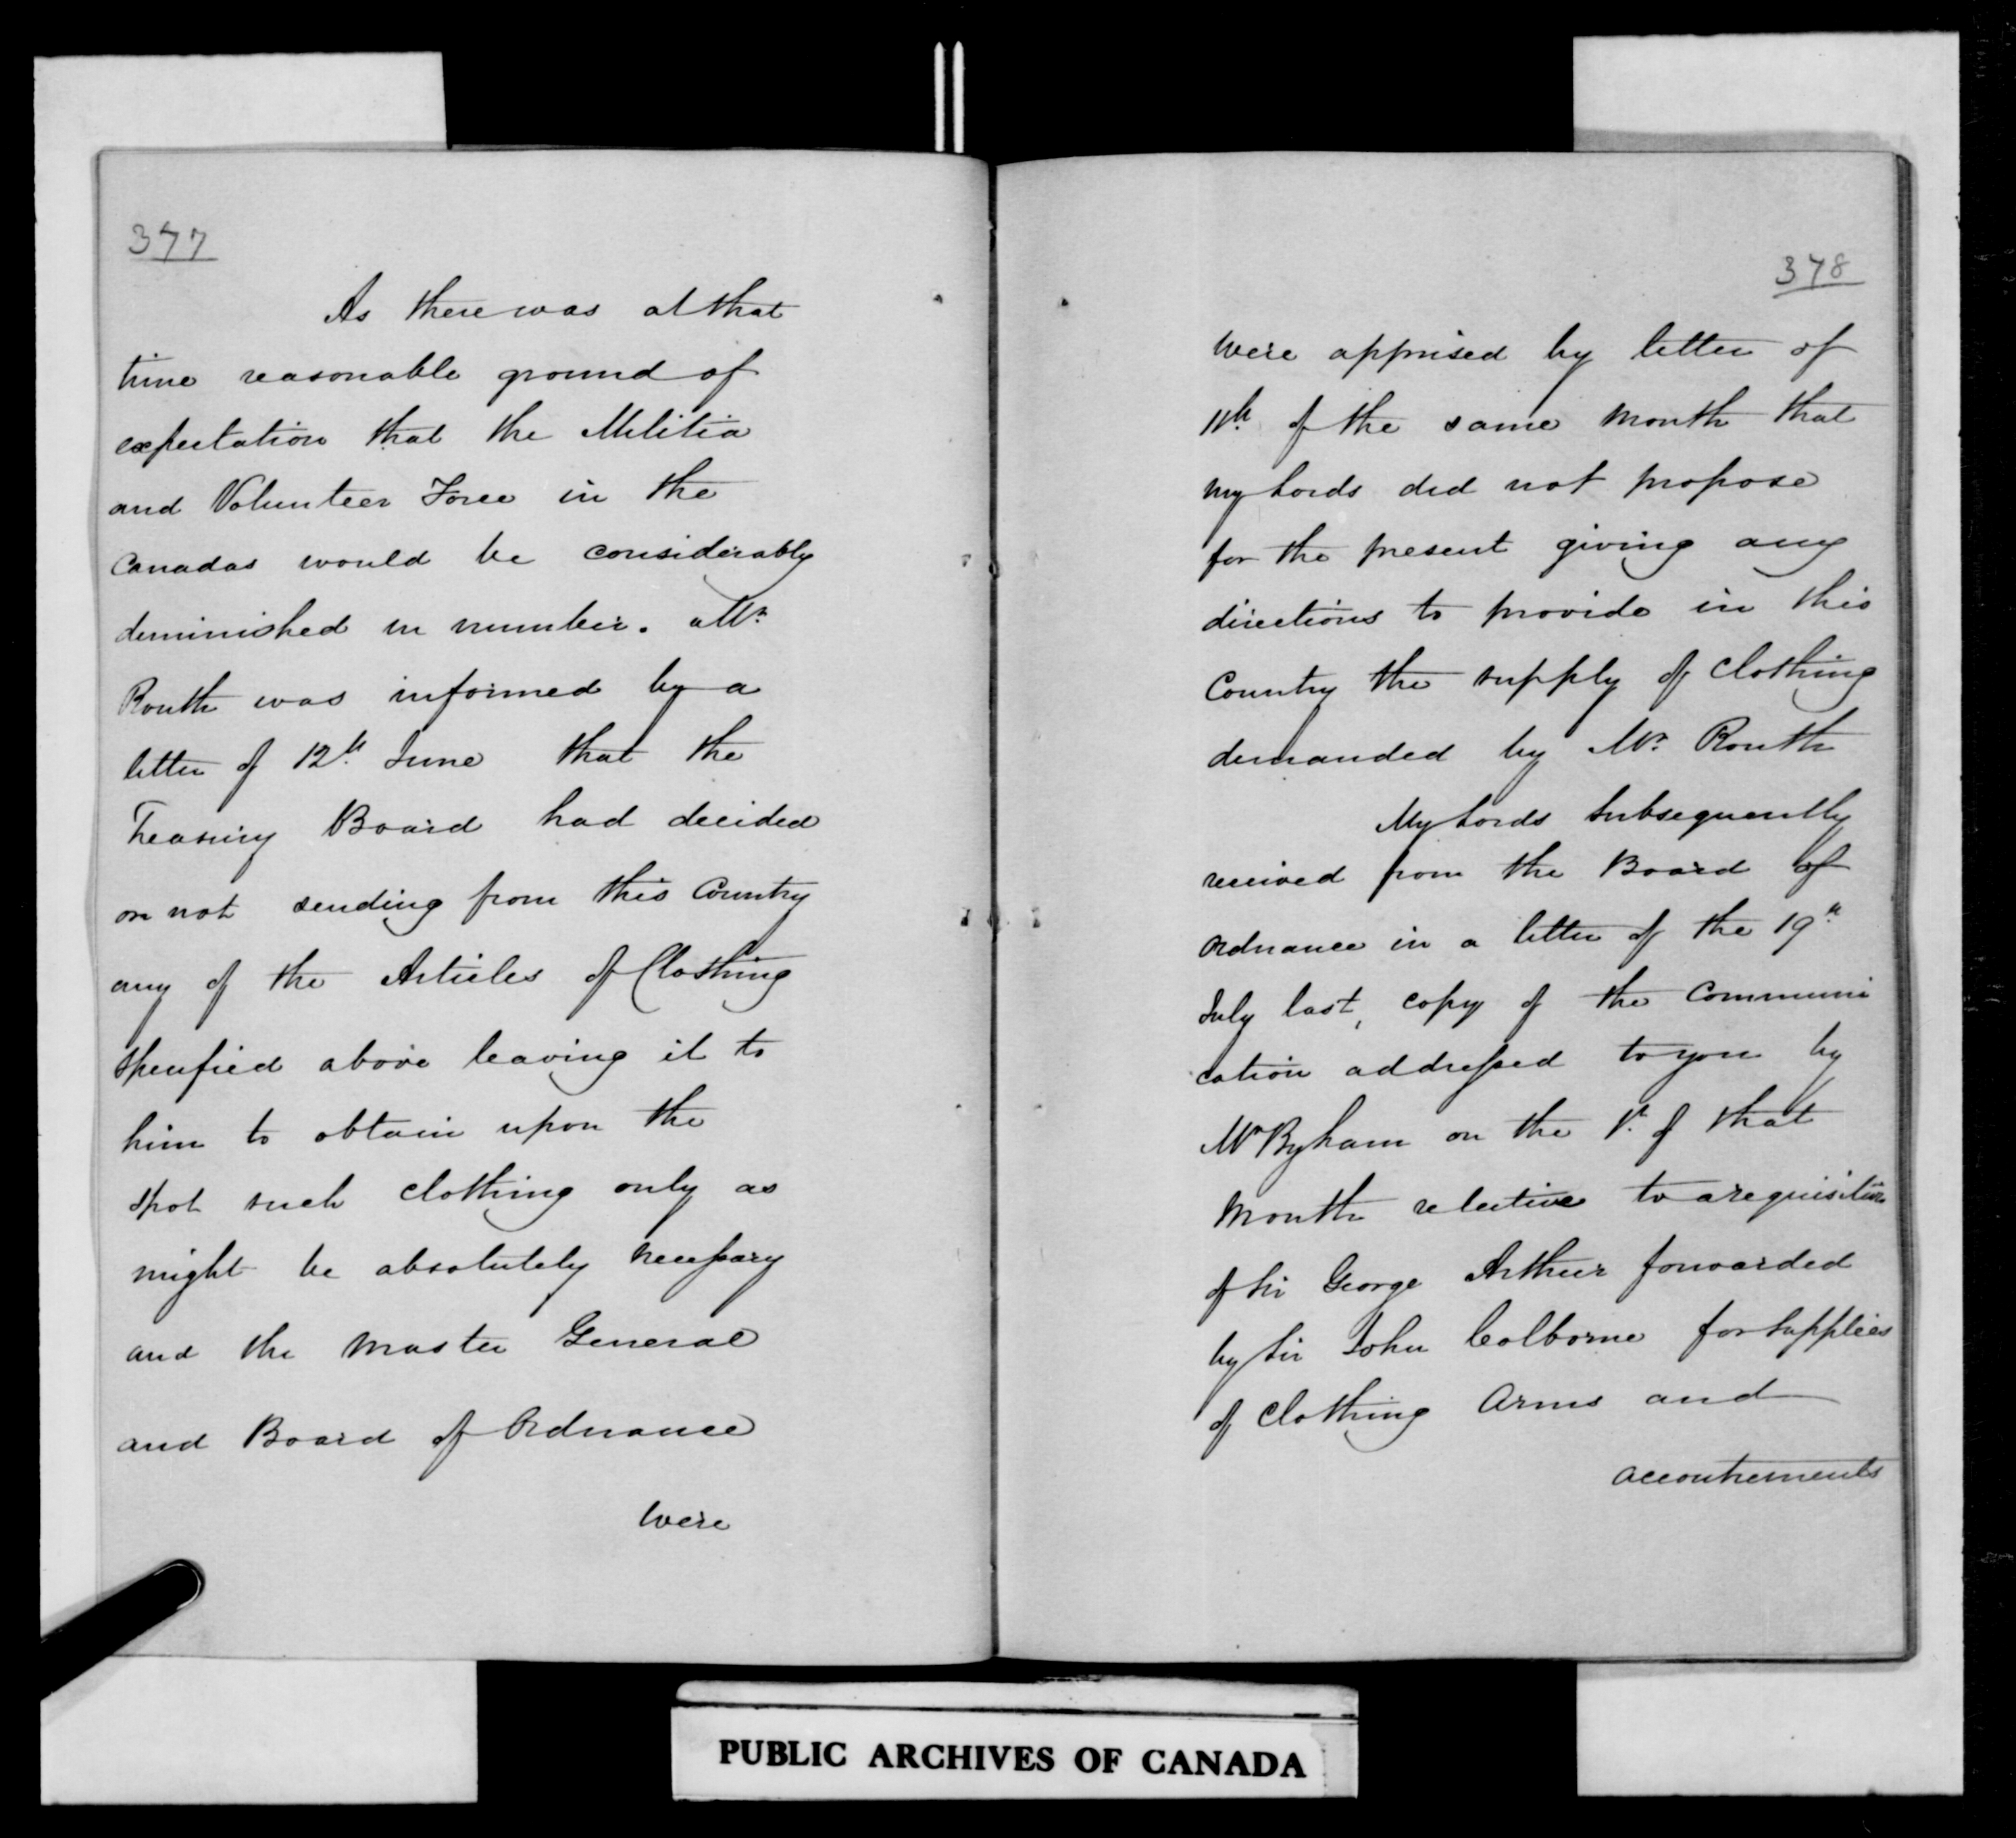 377
As there was at that
time reasonable ground of
expectation that the Militia
and Volunteer Force in the
Canadas would be considerably
diminished in number. Mr.
Routh was informed by a
letter of 12th. June that the
Treasury Board had decided
on not sending from this Country
any of the Articles of Clothing
specified above leaving it to
him to obtain upon the
spot such clothing only as
might be absolutely necessary
and the Master General
and Board of Ordnance
were
378
were apprised by letter of
11th. of the same month that
my Lords did not propose
for the present giving any
directions to provide in this
Country the supply of clothing
demanded by Mr. Routh
My Lords subsequently
received from the Board of
Ordnance in a letter of the 19th.
July last, copy of the communi
cation addressed to you by
Mr Byham on the 1st. of that
month relative to a requisition
of Sir George Arthur forwarded
by Sir John Colborne for supplies
of clothing Arms and
accoutrements
PUBLIC ARCHIVES OF CANADA